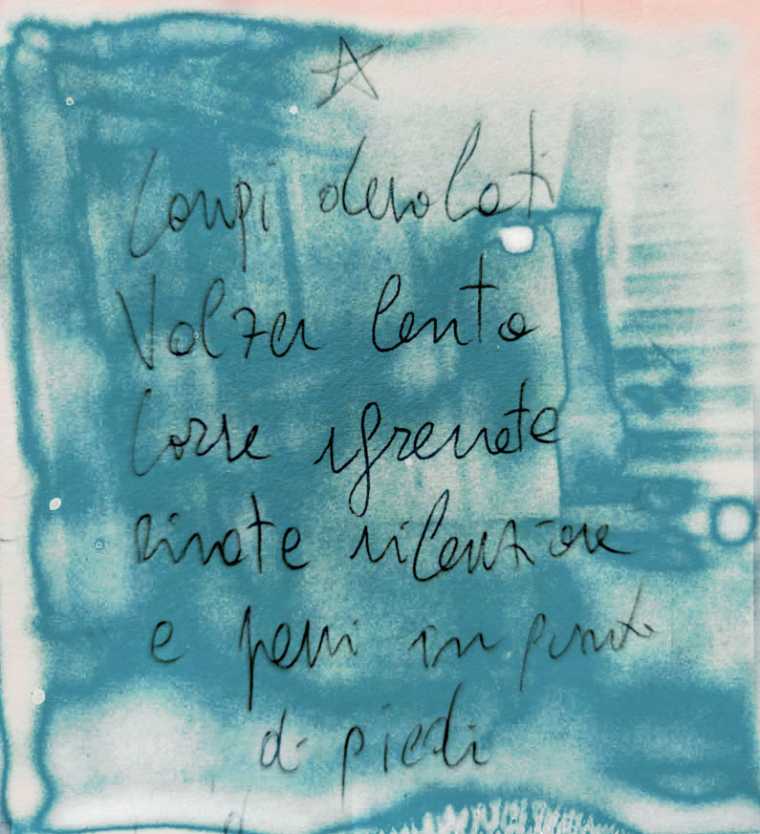 Campi desolati
Valzer lento
Corse sfrenate
Risate silenziose
e passi in punta
di piedi